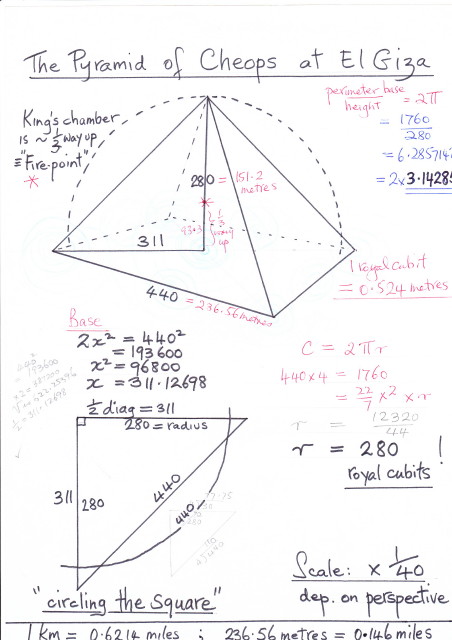 The Pyramid of Cheops at El Giza
King's chamber
is ~ 1/3 way up
≡ "Fire-point"
*
perimeter base / height = 2π
= 1760 / 280
= 6.2857142
= 2 x 3.14285
280 = 151.2 metres
93.3
1/3 way up
311
440 = 236.56 metres
1 royal cubit
= 0.524 metres
Base
2x² = 440²
= 193600
x² = 96800
x = 311.12698
1/2 diag = 311
440²
= 193600
1/2 = 311.12698
C = 2πr
440 x 4 = 1760
= 22/7 x 2 x r
r = 12320 / 44
r = 280 !
royal cubits
280 = radius
311
280
440
440
"circling the square"
Scale: x 1/40
dep. on perspective
1 km = 0.6214 miles ; 236.56 metres = 0.146 miles